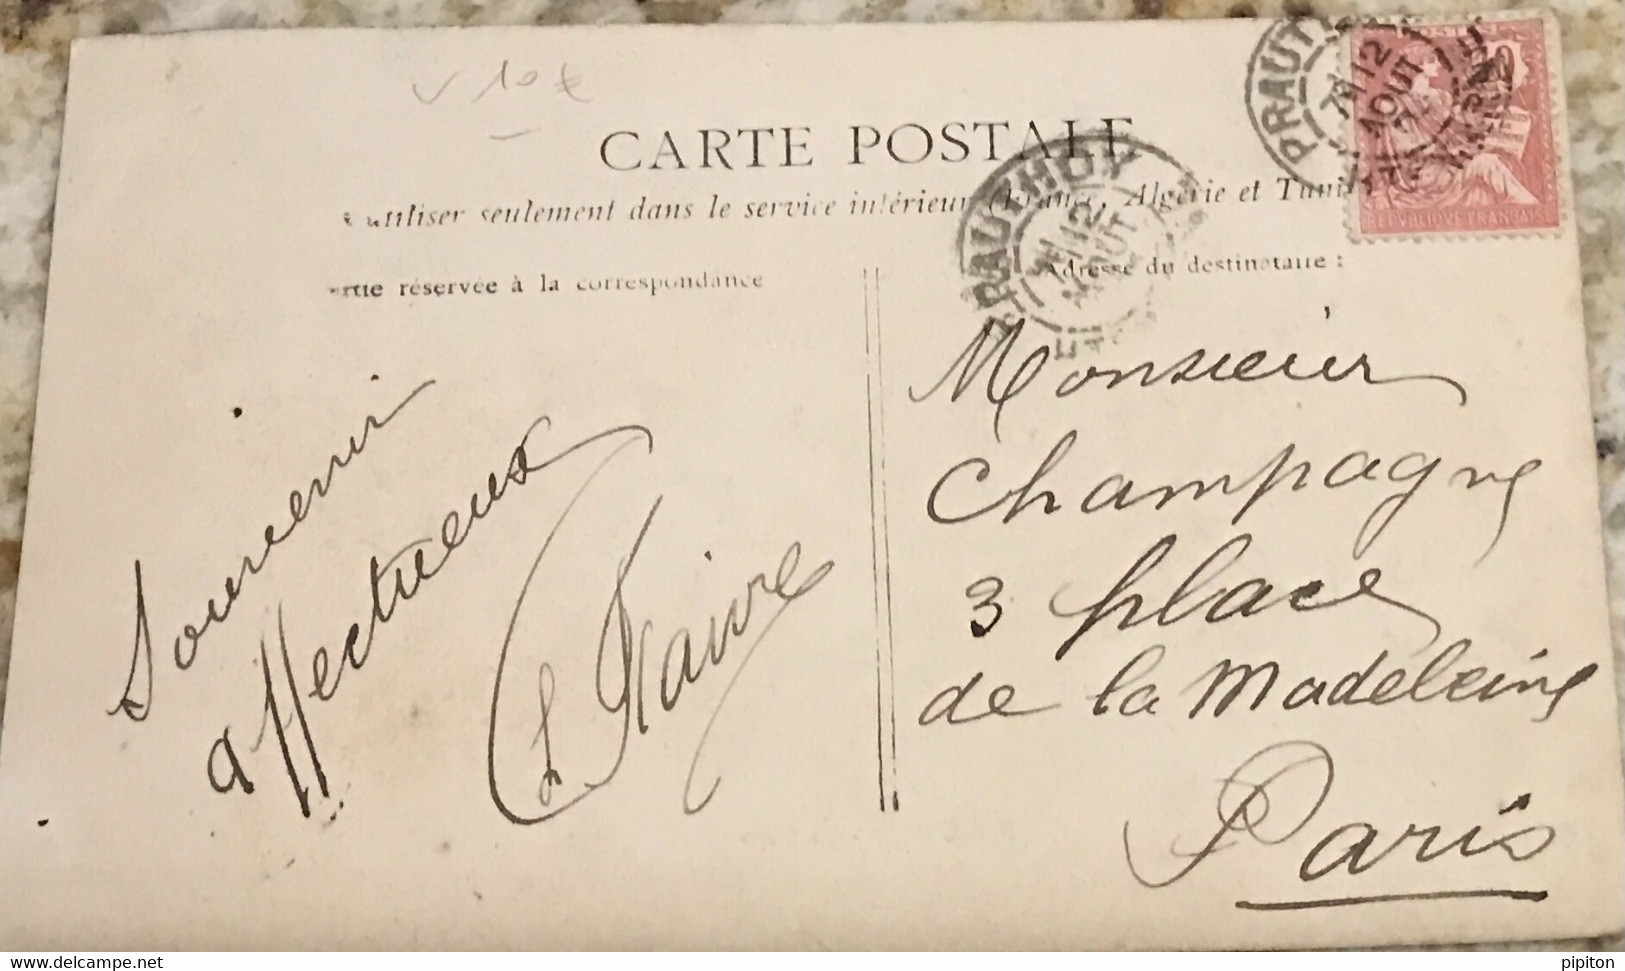 v 10€
CARTE POSTALE
utiliser seulement dans le service intérieur (France, Algérie et Tuni
rtie réservée à la correspondance
Adresse du destinataire :
PRAUTHOY
12
AOUT
PRAUT
7E 12
AOUT
REPUBLIQUE FRANÇAISE
Souvenir
affectueux
L. Faivre
Monsieur
Champagne
3 place
de la Madeleine
Paris
www.delcampe.net
pipiton